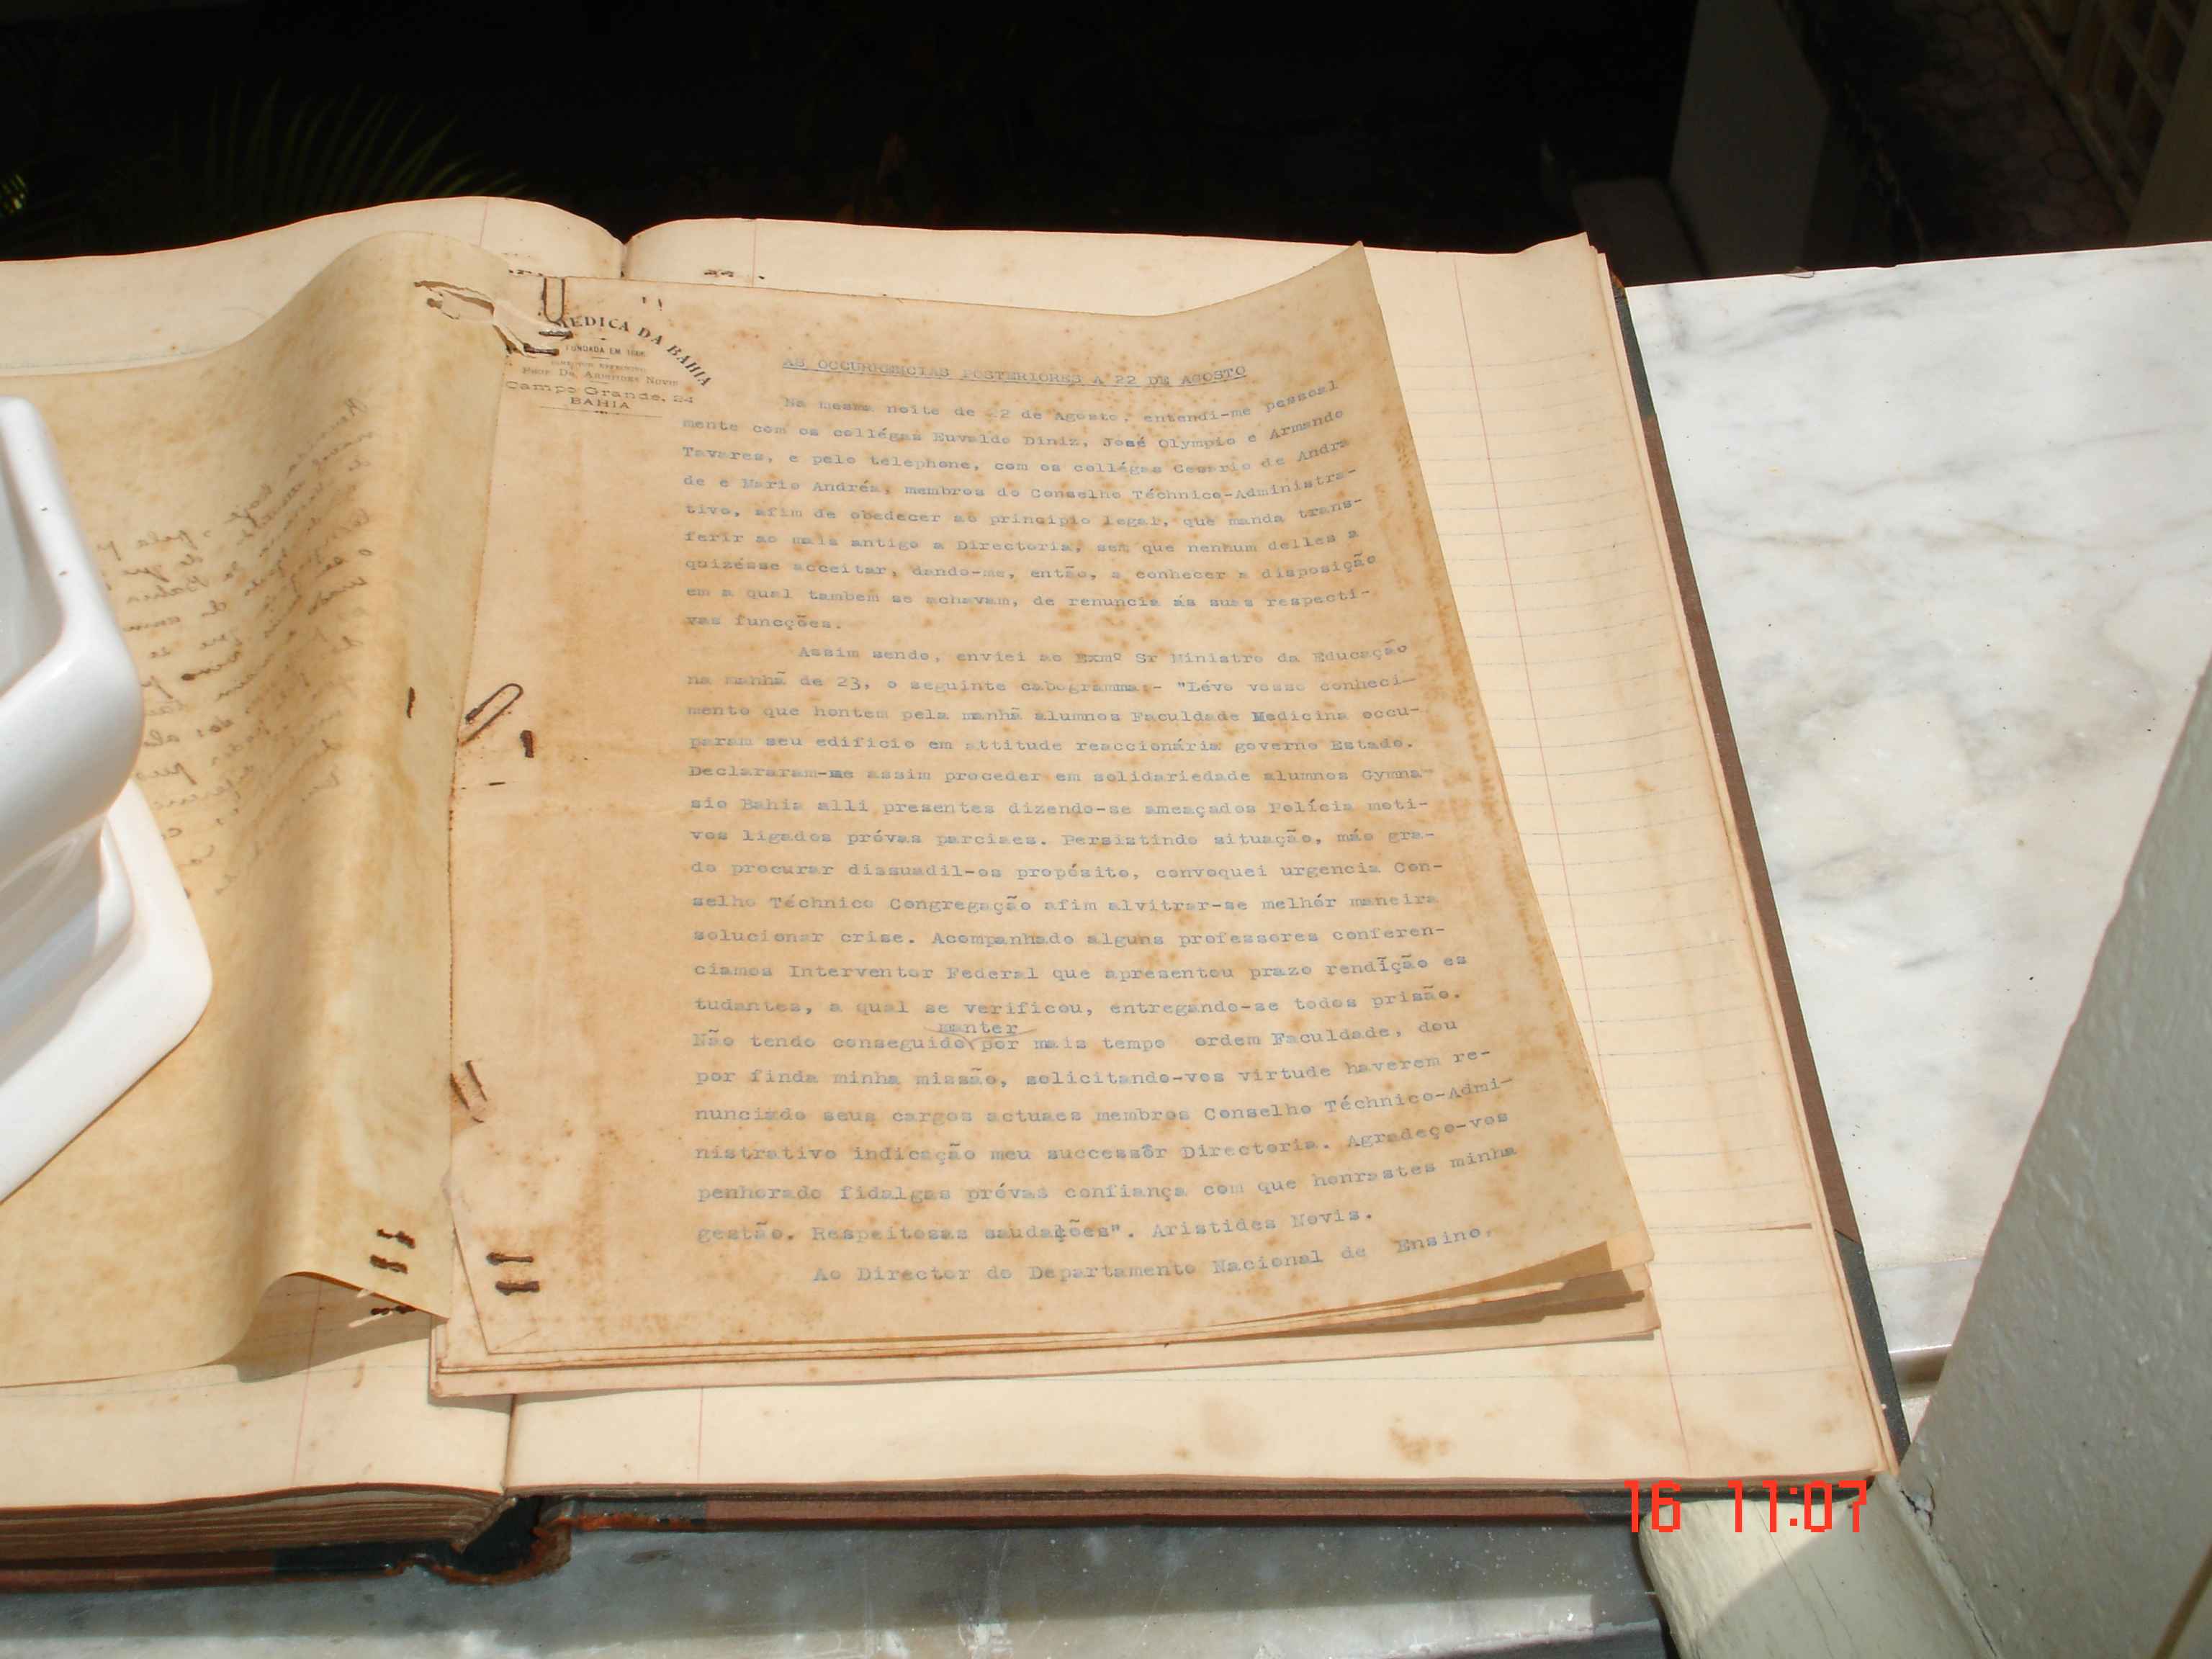 EDICA DA BAHIA
FUNDADA EM 1866
PROF. DR. ARISTIDES NOVIS
Campo Grande, 24
BAHIA
AS OCCURRENCIAS POSTERIORES A 22 DE AGOSTO
Na mesma noite de 22 de Agosto, entendi-me pessoal
mente com os collégas Euvaldo Diniz, José Olympio e Armando
Tavares, e pelo telephone, com os collégas Cesario de Andra
de e Mario Andréa, membros do Conselho Téchnico-Administra-
tivo, afim de obedecer ao principio legal, que manda trans-
ferir ao mais antigo a Directoria, sem que nenhum delles a
quizésse acceitar, dando-me, então, a conhecer a disposição
em a qual tambem se achavam, de renuncia ás suas respecti-
vas funcções.
Assim sendo, enviei ao Exmº Sr Ministro da Educação
na manhã de 23, o seguinte cabogramma:- "Lévo vosso conheci-
mento que hontem pela manhã alumnos Faculdade Medicina occu-
param seu edificio em attitude reaccionária governo Estado.
Declararam-me assim proceder em solidariedade alumnos Gymna-
sio Bahia alli presentes dizendo-se ameaçados Polícia moti-
vos ligados próvas parciaes. Persistindo situação, máo gra-
do procurar dissuadil-os propósito, convoquei urgencia Con-
selho Téchnico Congregação afim alvitrar-se melhór maneira
solucionar crise. Acompanhado alguns professores conferen-
ciamos Interventor Federal que apresentou prazo rendição es
tudantes, a qual se verificou, entregando-se todos prisão.
manter
Não tendo conseguido por mais tempo ordem Faculdade, dou
por finda minha missão, solicitando-vos virtude haverem re-
nunciado seus cargos actuaes membros Conselho Téchnico-Admi-
nistrativo indicação meu successôr Directoria. Agradeço-vos
penhorado fidalgas próvas confiança com que honrastes minha
gestão. Respeitosas saudações". Aristides Novis.
Ao Director do Departamento Nacional de Ensino,
16 11:07